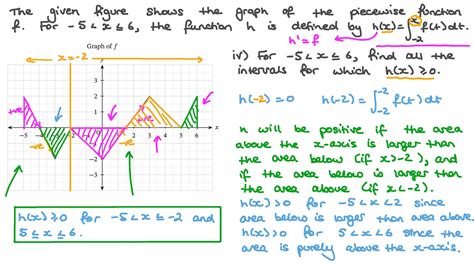 The given figure shows the graph of the piecewise function
f. For -5 < x ≤ 6, the function h is defined by h(x) = ∫₋₂ˣ f(t)dt.
h' = f
x = -2
Graph of f
+ve
-ve
-ve
-5
-3
-2
2
3
4
5
6
3
2
1
-1
-2
-3
h(x) ≥ 0 for -5 < x ≤ -2 and
5 ≤ x ≤ 6.
iv) For -5 < x ≤ 6, find all the
intervals for which h(x) ≥ 0.
h(-2) = 0 h(-2) = ∫₋₂⁻² f(t)dt
h will be positive if the area
above the x-axis is larger than
the area below (if x > -2), and
if the area below is larger than
the area above (if x < -2).
h(x) > 0 for -5 < x < 2 since
area below is larger than area above.
h(x) > 0 for 5 < x < 6 since the
area is purely above the x-axis.